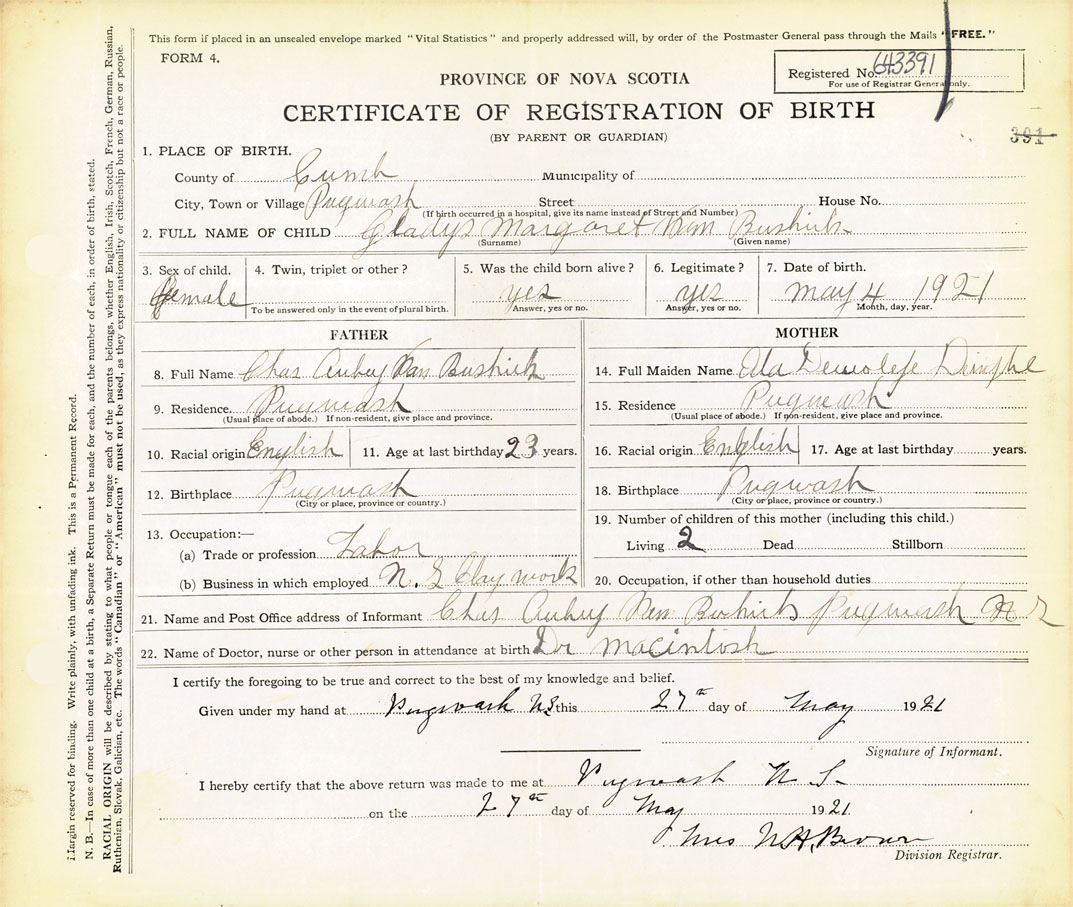 This form if placed in an unsealed envelope marked "Vital Statistics" and properly addressed will, by order of the Postmaster General pass through the Mails "FREE."
FORM 4.
PROVINCE OF NOVA SCOTIA
Registered No. 643391
For use of Registrar General only.
CERTIFICATE OF REGISTRATION OF BIRTH
(BY PARENT OR GUARDIAN)
391
1. PLACE OF BIRTH.
County of Cumb Municipality of
City, Town or Village Pugwash Street House No.
(If birth occurred in a hospital, give its name instead of Street and Number)
2. FULL NAME OF CHILD Gladys Margaret Van Buskirk
(Surname) (Given name)
3. Sex of child. 4. Twin, triplet or other? 5. Was the child born alive? 6. Legitimate? 7. Date of birth.
Female yes yes May 4 1921
To be answered only in the event of plural birth. Answer, yes or no. Answer, yes or no. Month, day, year.
FATHER
8. Full Name Chas Aubey Van Buskirk
9. Residence Pugwash
(Usual place of abode.) If non-resident, give place and province.
10. Racial origin English 11. Age at last birthday 23 years.
12. Birthplace Pugwash
(City or place, province or country.)
13. Occupation:—
(a) Trade or profession Labor
(b) Business in which employed N. S Clay work
MOTHER
14. Full Maiden Name Ada Dewolefe
15. Residence Pugwash
(Usual place of abode.) If non-resident, give place and province.
16. Racial origin English 17. Age at last birthday years.
18. Birthplace Pugwash
(City or place, province or country.)
19. Number of children of this mother (including this child.)
Living 2 Dead Stillborn
20. Occupation, if other than household duties
21. Name and Post Office address of Informant Chas Aubey Van Buskirk Pugwash N S
22. Name of Doctor, nurse or other person in attendance at birth Dr MacIntosh
I certify the foregoing to be true and correct to the best of my knowledge and belief.
Given under my hand at Pugwash N.S this 27th day of May 1921
Signature of Informant.
I hereby certify that the above return was made to me at Pugwash N. S.
on the 27th day of May 1921
Mrs N.H. Brown
Division Registrar.
Margin reserved for binding. Write plainly, with unfading ink. This is a Permanent Record.
N. B.—In case of more than one child at a birth, a Separate Return must be made for each, and the number of each, in order of birth, stated.
RACIAL ORIGIN will be described by stating to what people or tongue each of the parents belongs, whether English, Irish, Scotch, French, German, Russian,
Ruthenian, Slovak, Galician, etc. The words "Canadian" or "American" must not be used, as they express nationality or citizenship but not a race or people.